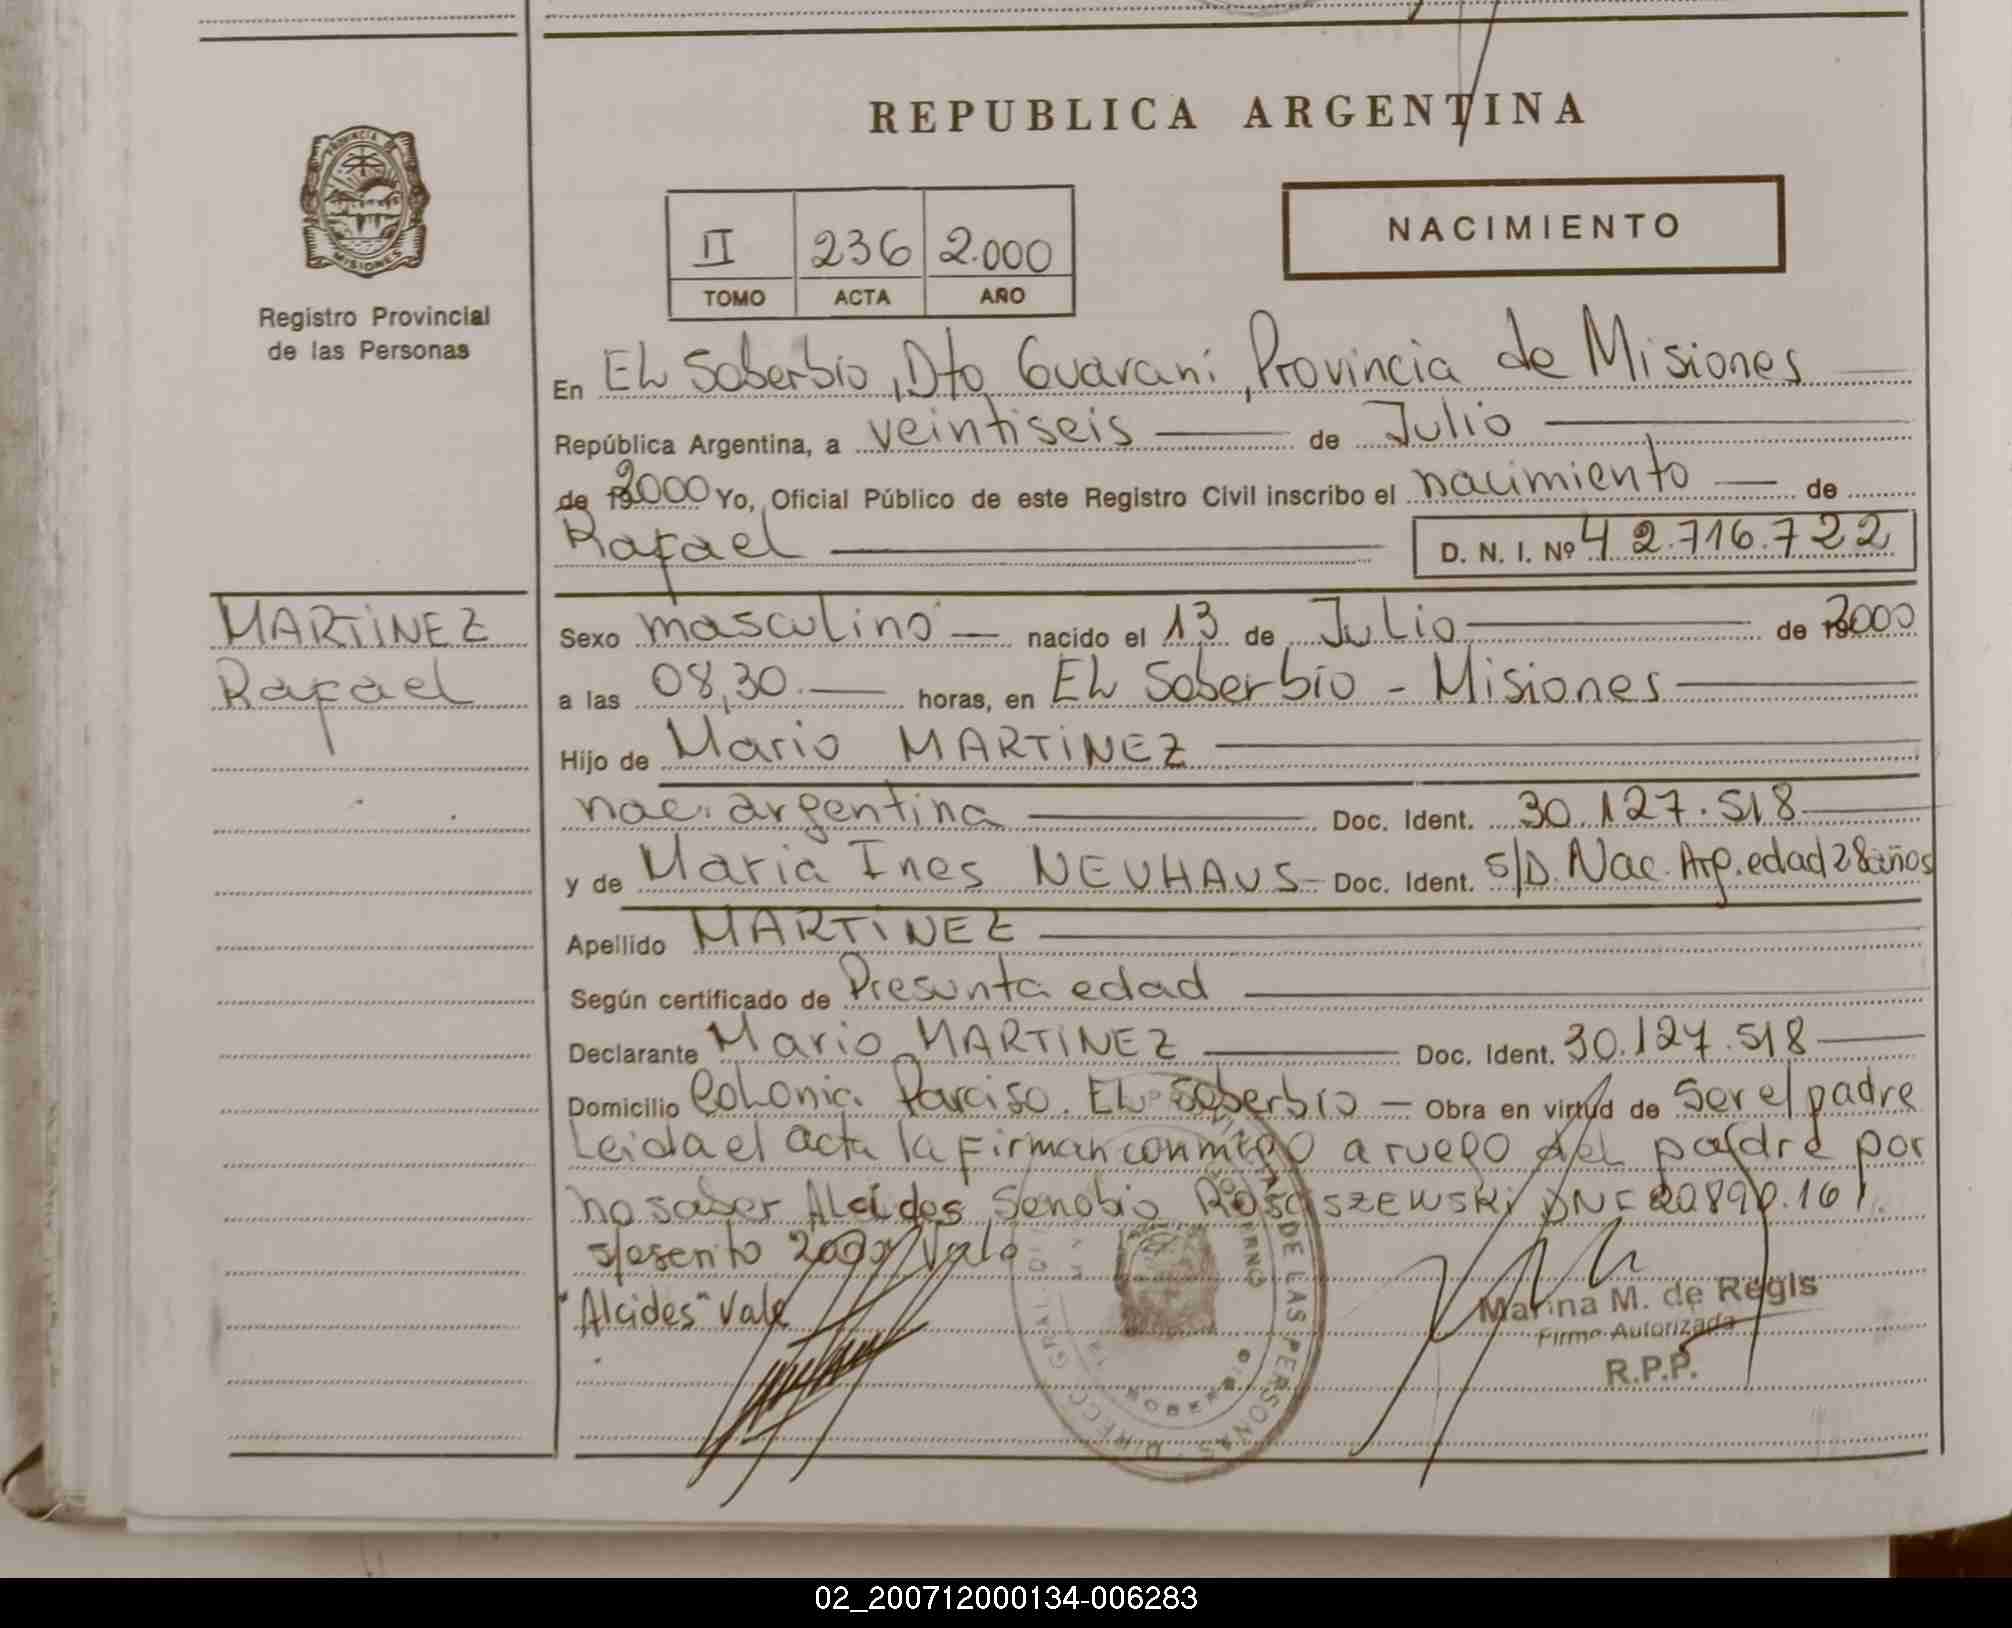 REPUBLICA ARGENTINA
PROVINCIA DE
MISIONES
Registro Provincial
de las Personas
II 236 2.000
TOMO ACTA AÑO
NACIMIENTO
En EL Soberbio, Dto Guaraní, Provincia de Misiones
República Argentina, a veintiseis de Julio
de 2000 Yo, Oficial Público de este Registro Civil inscribo el nacimiento de
Rafael D. N. I. Nº 42.716.722
MARTINEZ
Rafael
Sexo masculino nacido el 13 de Julio de 2000
a las 08,30. horas, en EL Soberbio - Misiones
Hijo de Mario MARTINEZ
nac. argentina Doc. Ident. 30.127.518
y de Maria Ines NEUHAUS - Doc. Ident. S/D. Nac. Arg. edad 28 años
Apellido MARTINEZ
Según certificado de Presunta edad
Declarante Mario MARTINEZ Doc. Ident. 30.127.518
Domicilio Colonia Parciso. EL Soberbio - Obra en virtud de Ser el padre
Leida el acta la firman conmigo a ruego del padre por
no saber Alcides Senobio DNI
2000 Vale
"Alcides" Vale
DE LAS PERSONAS
Marina M. de Regis
Firma Autorizada
R.P.P.
02_200712000134-006283